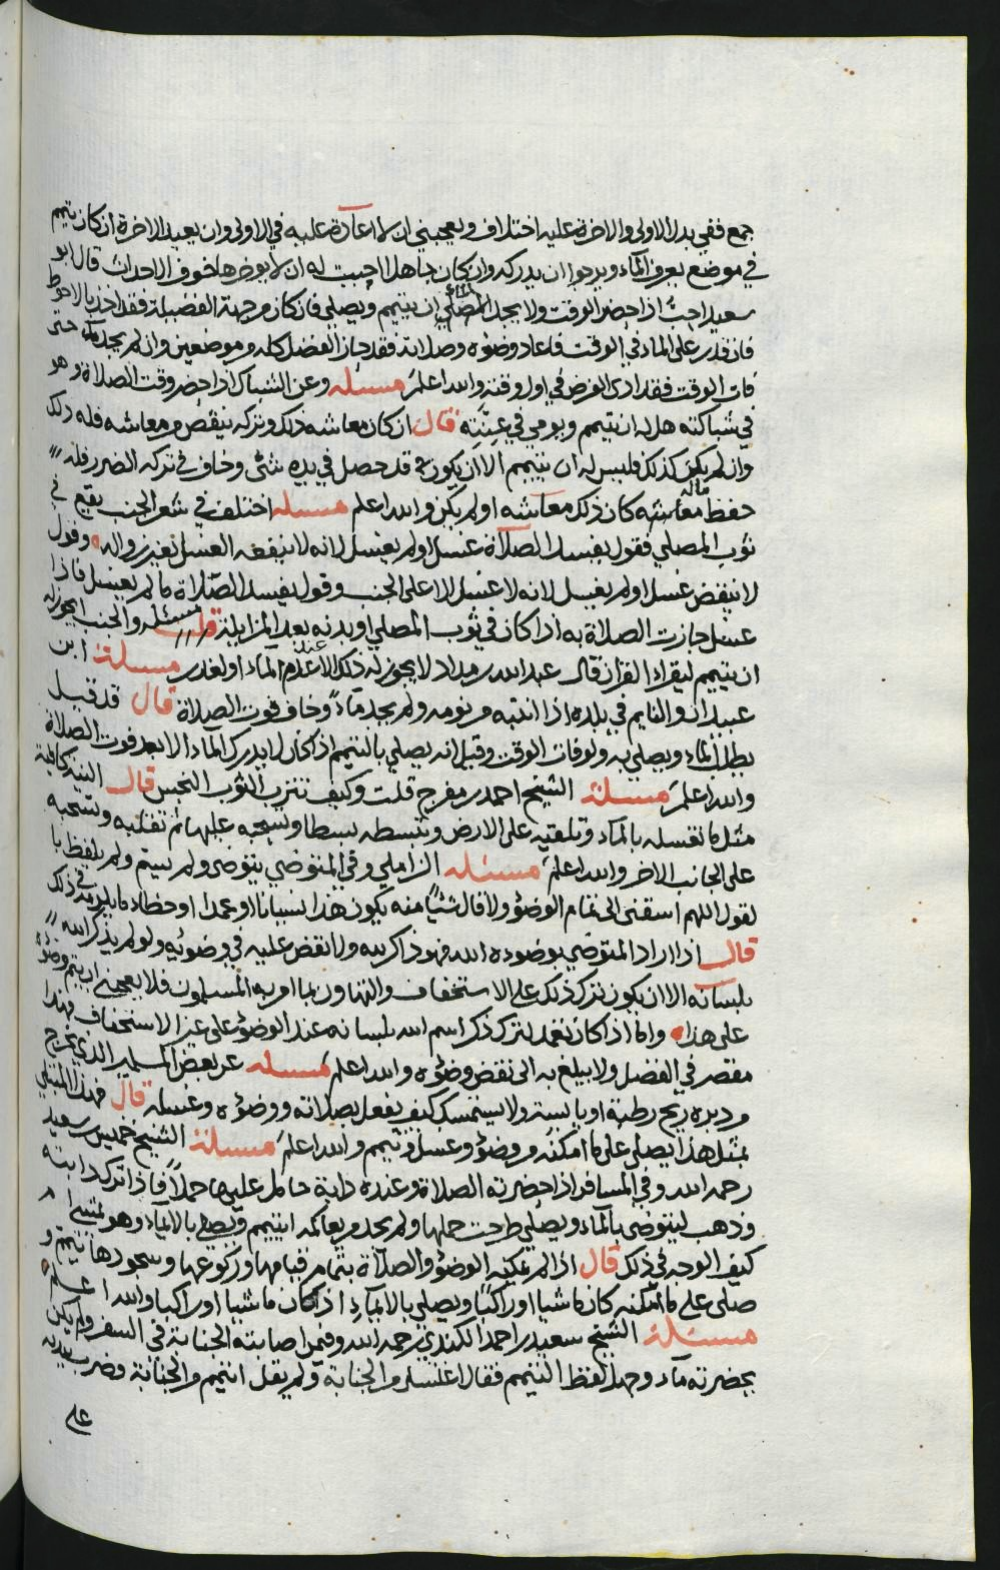 جمع ففي بدل الاولى والاخرة عليه اختلاف ويعجبني ان لا اعادة عليه في الاولى وان يعيد الاخرة ان كان تيمم
في موضع يعرف الماء ويرجوا ان يدركه وان كان جاهلا احببت له ان لا يوخرها خوف الاحداث قال ابو
سعيد احب اذا حضر الوقت ولا يجد المصلي الماء ان يتيمم ويصلي فان كان من جهة الفضيلة فقد اخذ بالاحوط
فان قدر على الماء في الوقت فاعاد وضوه وصلاته فقد حاز الفضل كله من موضعين وان لم يجد ماء حتى
فات الوقت فقد ادى الفرض في اول وقته والله اعلم مسئله وعن الشباك اذا حضر وقت الصلاة وهو
في شباكته هل له ان يتيمم ويومي في قال ان كان معاشه ذلك وتركه ينقص من معاشه فله ذلك
وان لم يكن كذلك فليس له ان يتيمم الا ان يكون قد حصل في يده شئ وخاف في تركه الضرر فله
حفظ ماله معاشه كان ذلك معاشه او لم يكن والله اعلم مسئله اختلف في شعر الجنب يقع في
ثوب المصلي فقول يفسد الصلاة غسل او لم يغسل لانه لا ينفعه الغسل لغير زواله وقول
لا ينقض غسل او لم يغسل لانه لا غسل الا على الجنب وقول يفسد الصلاة ما لم يغسل فاذا
غسل جازت الصلاة به اذا كان في ثوب المصلي او بدنه بعد المزايلة قلت مسئله والجنب ايجوز له
ان يتيمم ليقراء القران قال عبد الله بن مداد لا يجوز له ذلك الا عند عدم الماء او لعذر مسئلة ابن
عبيدان والنايم في بلده اذا انتبه من نومه ولم يجد ماءً وخاف فوت الصلاة قال قد قيل
يطلب الماء ويصلي به ولو فات الوقت وقيل انه يصلي بالتيمم اذا كان لا يدرك الماء الا بعد فوت الصلاة
والله اعلم مسئلة الشيخ احمد بن مفرج قلت وكيف تترب الثوب النجس قال النية كافية
مثل ما تغسله بالماء وتلقيه على الارض وتبسطه بسطا وتسحبه عليها ثم تقلبه وتسحبه
على الجانب الاخر والله اعلم مسئله الزاملي وفي المتوضي يتوضى ولم يسم ولم يلفظ با
لقول اللهم اسقني الى تمام الوضؤ ولا قال شيًا منه يكون هذا نسيانا او عمدا او خطاء ما يلزمه في ذلك
قال اذا اراد المتوضي بوضوءه الله فهو ذاكر لله ولا نقض عليه في وضوئه ولو لم يذكر الله
بلسانه الا ان يكون ترك ذلك على الاستخفاف والتهاون بما امر به المسلمون فلا يعجبني ان يتم وضوؤه
على هذا واما اذا كان تعمد لترك ذكر اسم الله بلسانه عند الوضوء على غير الاستخفاف فهذا
مقصر في الفضل ولا يبلغ به الى نقض وضوءه والله اعلم مسئله عن بعض المسلمين الذي يخرج
من دبره ريح رطبة او يابسة ولا يستمسك كيف يفعل بصلاته ووضوءه وغسله قال فهذا المبتلي
بمثل هذا يصلي على ما امكنه من وضؤ وغسل وتيمم والله اعلم مسئلة الشيخ خميس بن سعيد
رحمه الله وفي المسافر اذا حضرته الصلاة وعنده دابة حامل عليها حملاً فاذا ترك دابته
وذهب ليتوضى بالماء ويصلي طرحت حملها ولم يجد من يعاكمه ايتيمم ويصلي بالايماء وهو يمشي ام
كيف الوجه في ذلك قال اذا لم يمكنه الوضؤ والصلاة بتمام قيامها وركوعها وسجودها تيمم و
صلى على ما امكنه كان ماشيا او راكبًا ويصلي بالايماء اذا كان ماشيا او راكبا والله اعلم
مسئلة الشيخ سعيد بن احمد الكندي رحمه الله وفيمن اصابته الجنابة في السفر ولم يكن
بحضرته ماء وجهل لفظ التيمم فقال اغتسل من الجنابة ولم يقل اتيمم من الجنابة وضرب بيديه
على